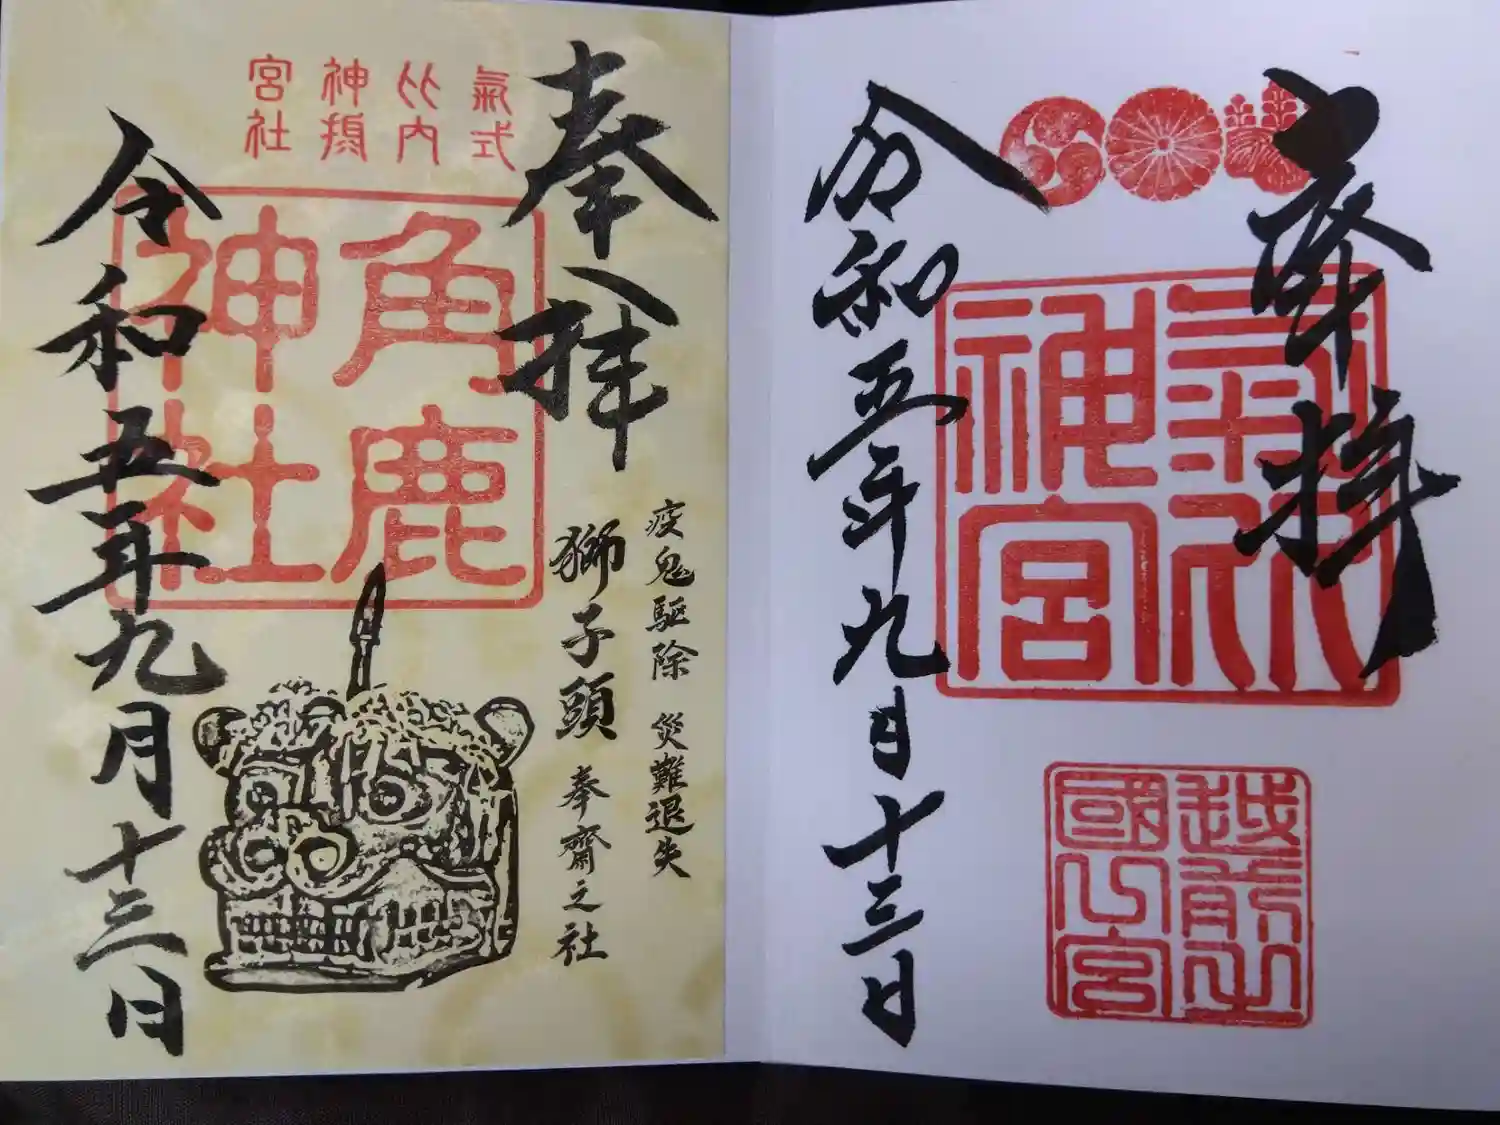 奉拝
令和五年九月十三日
氣比神宮
越前之
國一宮
奉拝
疫鬼駆除 災難退失
獅子頭 奉齋之社
式内摂社
氣比神宮
角鹿
神社
令和五年九月十三日